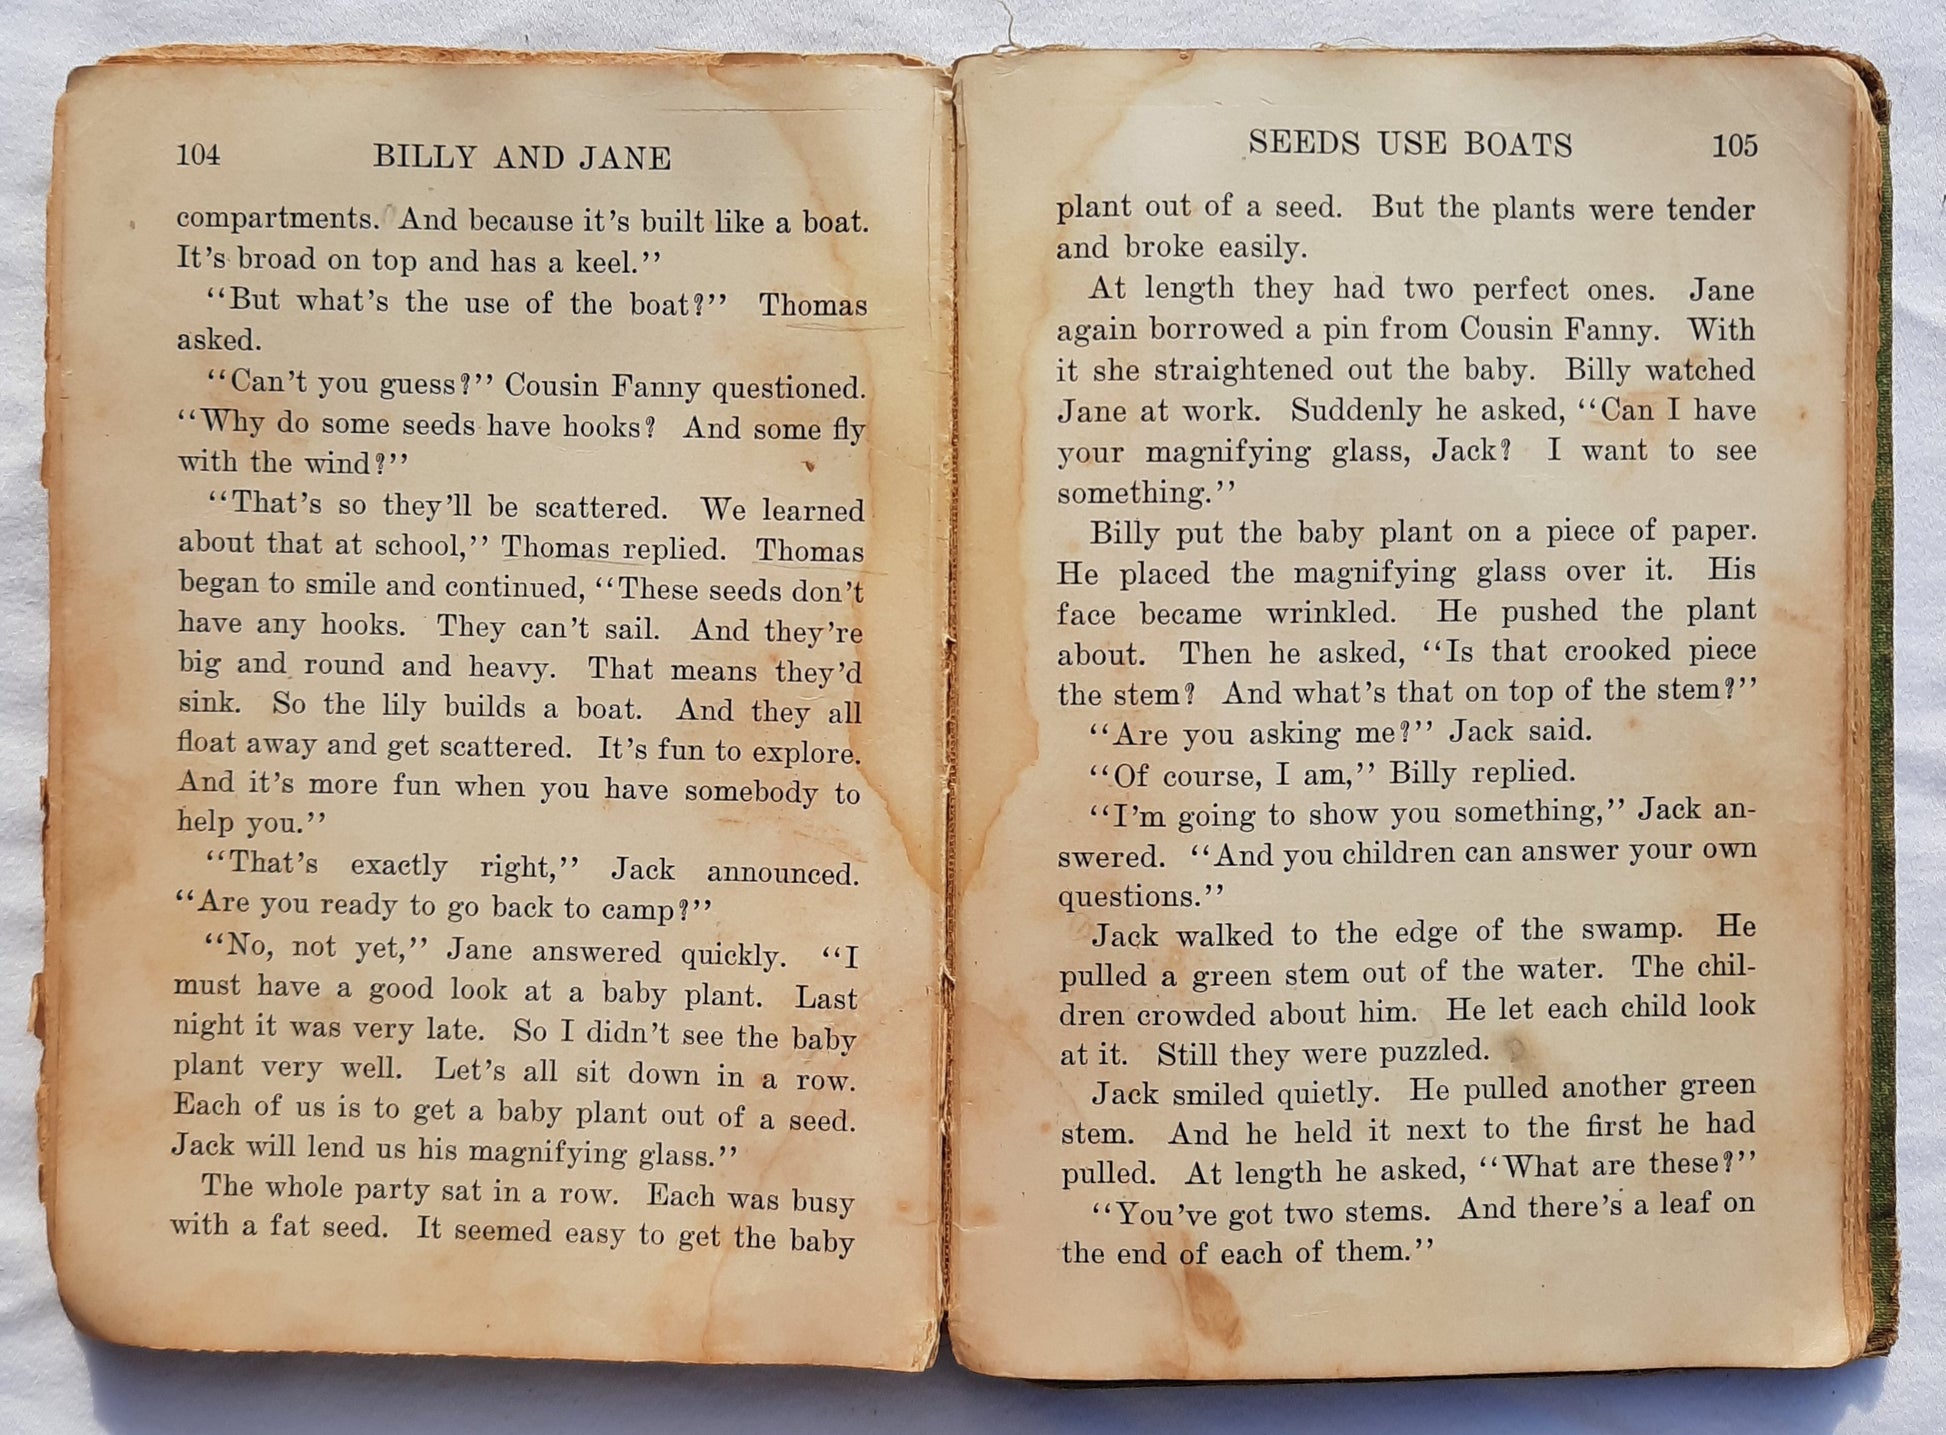 104 BILLY AND JANE
compartments. And because it's built like a boat.
It's broad on top and has a keel.''
‘‘But what's the use of the boat?’’ Thomas
asked.
‘‘Can't you guess?’’ Cousin Fanny questioned.
‘‘Why do some seeds have hooks? And some fly
with the wind?’’
‘‘That's so they'll be scattered. We learned
about that at school,’’ Thomas replied. Thomas
began to smile and continued, ‘‘These seeds don't
have any hooks. They can't sail. And they're
big and round and heavy. That means they'd
sink. So the lily builds a boat. And they all
float away and get scattered. It's fun to explore.
And it's more fun when you have somebody to
help you.’’
‘‘That's exactly right,’’ Jack announced.
‘‘Are you ready to go back to camp?’’
‘‘No, not yet,’’ Jane answered quickly. ‘‘I
must have a good look at a baby plant. Last
night it was very late. So I didn't see the baby
plant very well. Let's all sit down in a row.
Each of us is to get a baby plant out of a seed.
Jack will lend us his magnifying glass.’’
The whole party sat in a row. Each was busy
with a fat seed. It seemed easy to get the baby
SEEDS USE BOATS 105
plant out of a seed. But the plants were tender
and broke easily.
At length they had two perfect ones. Jane
again borrowed a pin from Cousin Fanny. With
it she straightened out the baby. Billy watched
Jane at work. Suddenly he asked, ‘‘Can I have
your magnifying glass, Jack? I want to see
something.’’
Billy put the baby plant on a piece of paper.
He placed the magnifying glass over it. His
face became wrinkled. He pushed the plant
about. Then he asked, ‘‘Is that crooked piece
the stem? And what's that on top of the stem?’’
‘‘Are you asking me?’’ Jack said.
‘‘Of course, I am,’’ Billy replied.
‘‘I'm going to show you something,’’ Jack an-
swered. ‘‘And you children can answer your own
questions.’’
Jack walked to the edge of the swamp. He
pulled a green stem out of the water. The chil-
dren crowded about him. He let each child look
at it. Still they were puzzled.
Jack smiled quietly. He pulled another green
stem. And he held it next to the first he had
pulled. At length he asked, ‘‘What are these?’’
‘‘You've got two stems. And there's a leaf on
the end of each of them.’’